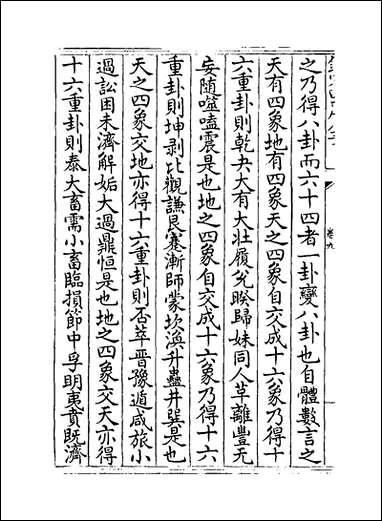 之乃得八卦而六十四者一卦變八卦也自體數言之
天有四象地有四象天之四象自交成十六象乃得十
六重卦則乾夬大有大壯履兊睽歸妹同人革離豐无
妄随噬嗑震是也地之四象自交成十六象乃得十六
重卦則坤剥比觀謙艮蹇漸師蒙坎渙升蠱井巽是也
天之四象交地亦得十六重卦則否萃晉豫遁咸旅小
過訟困未濟解姤大過鼎恒是也地之四象交天亦得
十六重卦則泰大畜需小畜臨損節中孚明夷賁既濟
卷九